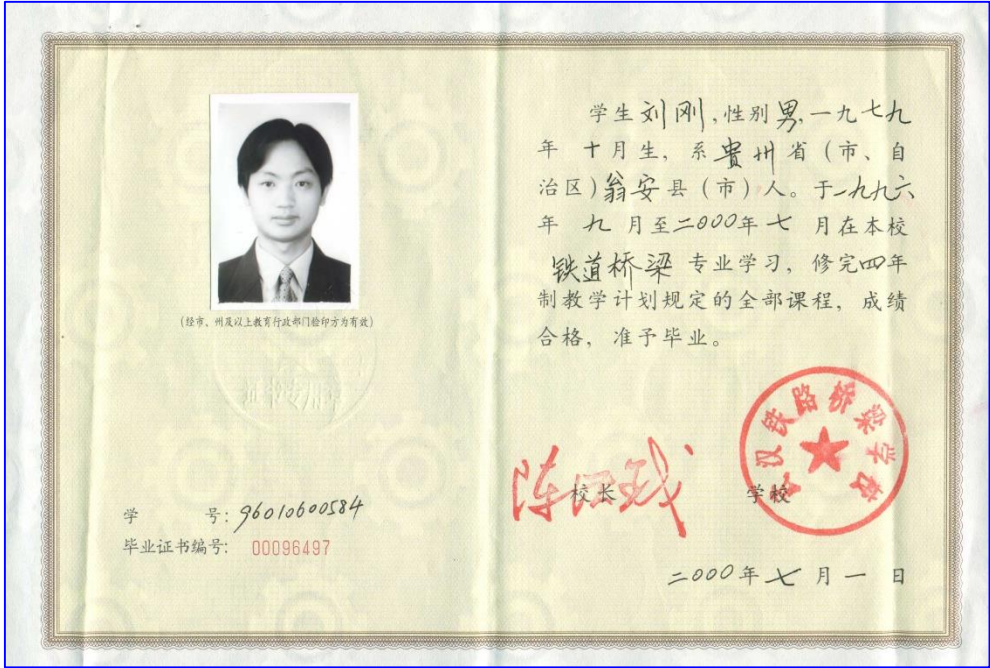 (经市、州及以上教育行政部门验印方为有效)
学 号: 96010600584
毕业证书编号: 00096497
学生刘刚,性别男,一九七九
年 十月生, 系贵州省(市、自
治区)翁安县(市)人。于一九九六
年 九 月至二000年七 月在本校
铁道桥梁 专业学习, 修完四年
制教学计划规定的全部课程, 成绩
合格, 准予毕业。
武汉铁路桥梁学校
校长 学校
二000年七月一日